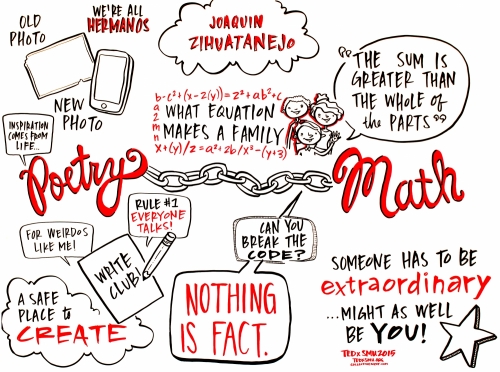 OLD
PHOTO
WE'RE ALL
HERMANOS
NEW
PHOTO
JOAQUIN
ZIHUATANEJO
b-c²+(x-2(y))=z³+ab²+c
a
2
m
n
WHAT EQUATION
MAKES A FAMILY
x+(y)/z=a²+2b/x³-(y+3)
"THE SUM IS
GREATER THAN
THE WHOLE of
the PARTS"
INSPIRATION
COMES FROM
LIFE...
Poetry
Math
FOR WEIRDOS
LIKE ME!
RULE #1
EVERYONE
TALKS!
WRITE
CLUB!
A SAFE
PLACE to
CREATE
CAN YOU
BREAK THE
CODE?
NOTHING
IS FACT.
SOMEONE HAS TO BE
extraordinary
...MIGHT AS WELL
BE YOU!
TEDx SMU 2015
TEDXSMU.ORG